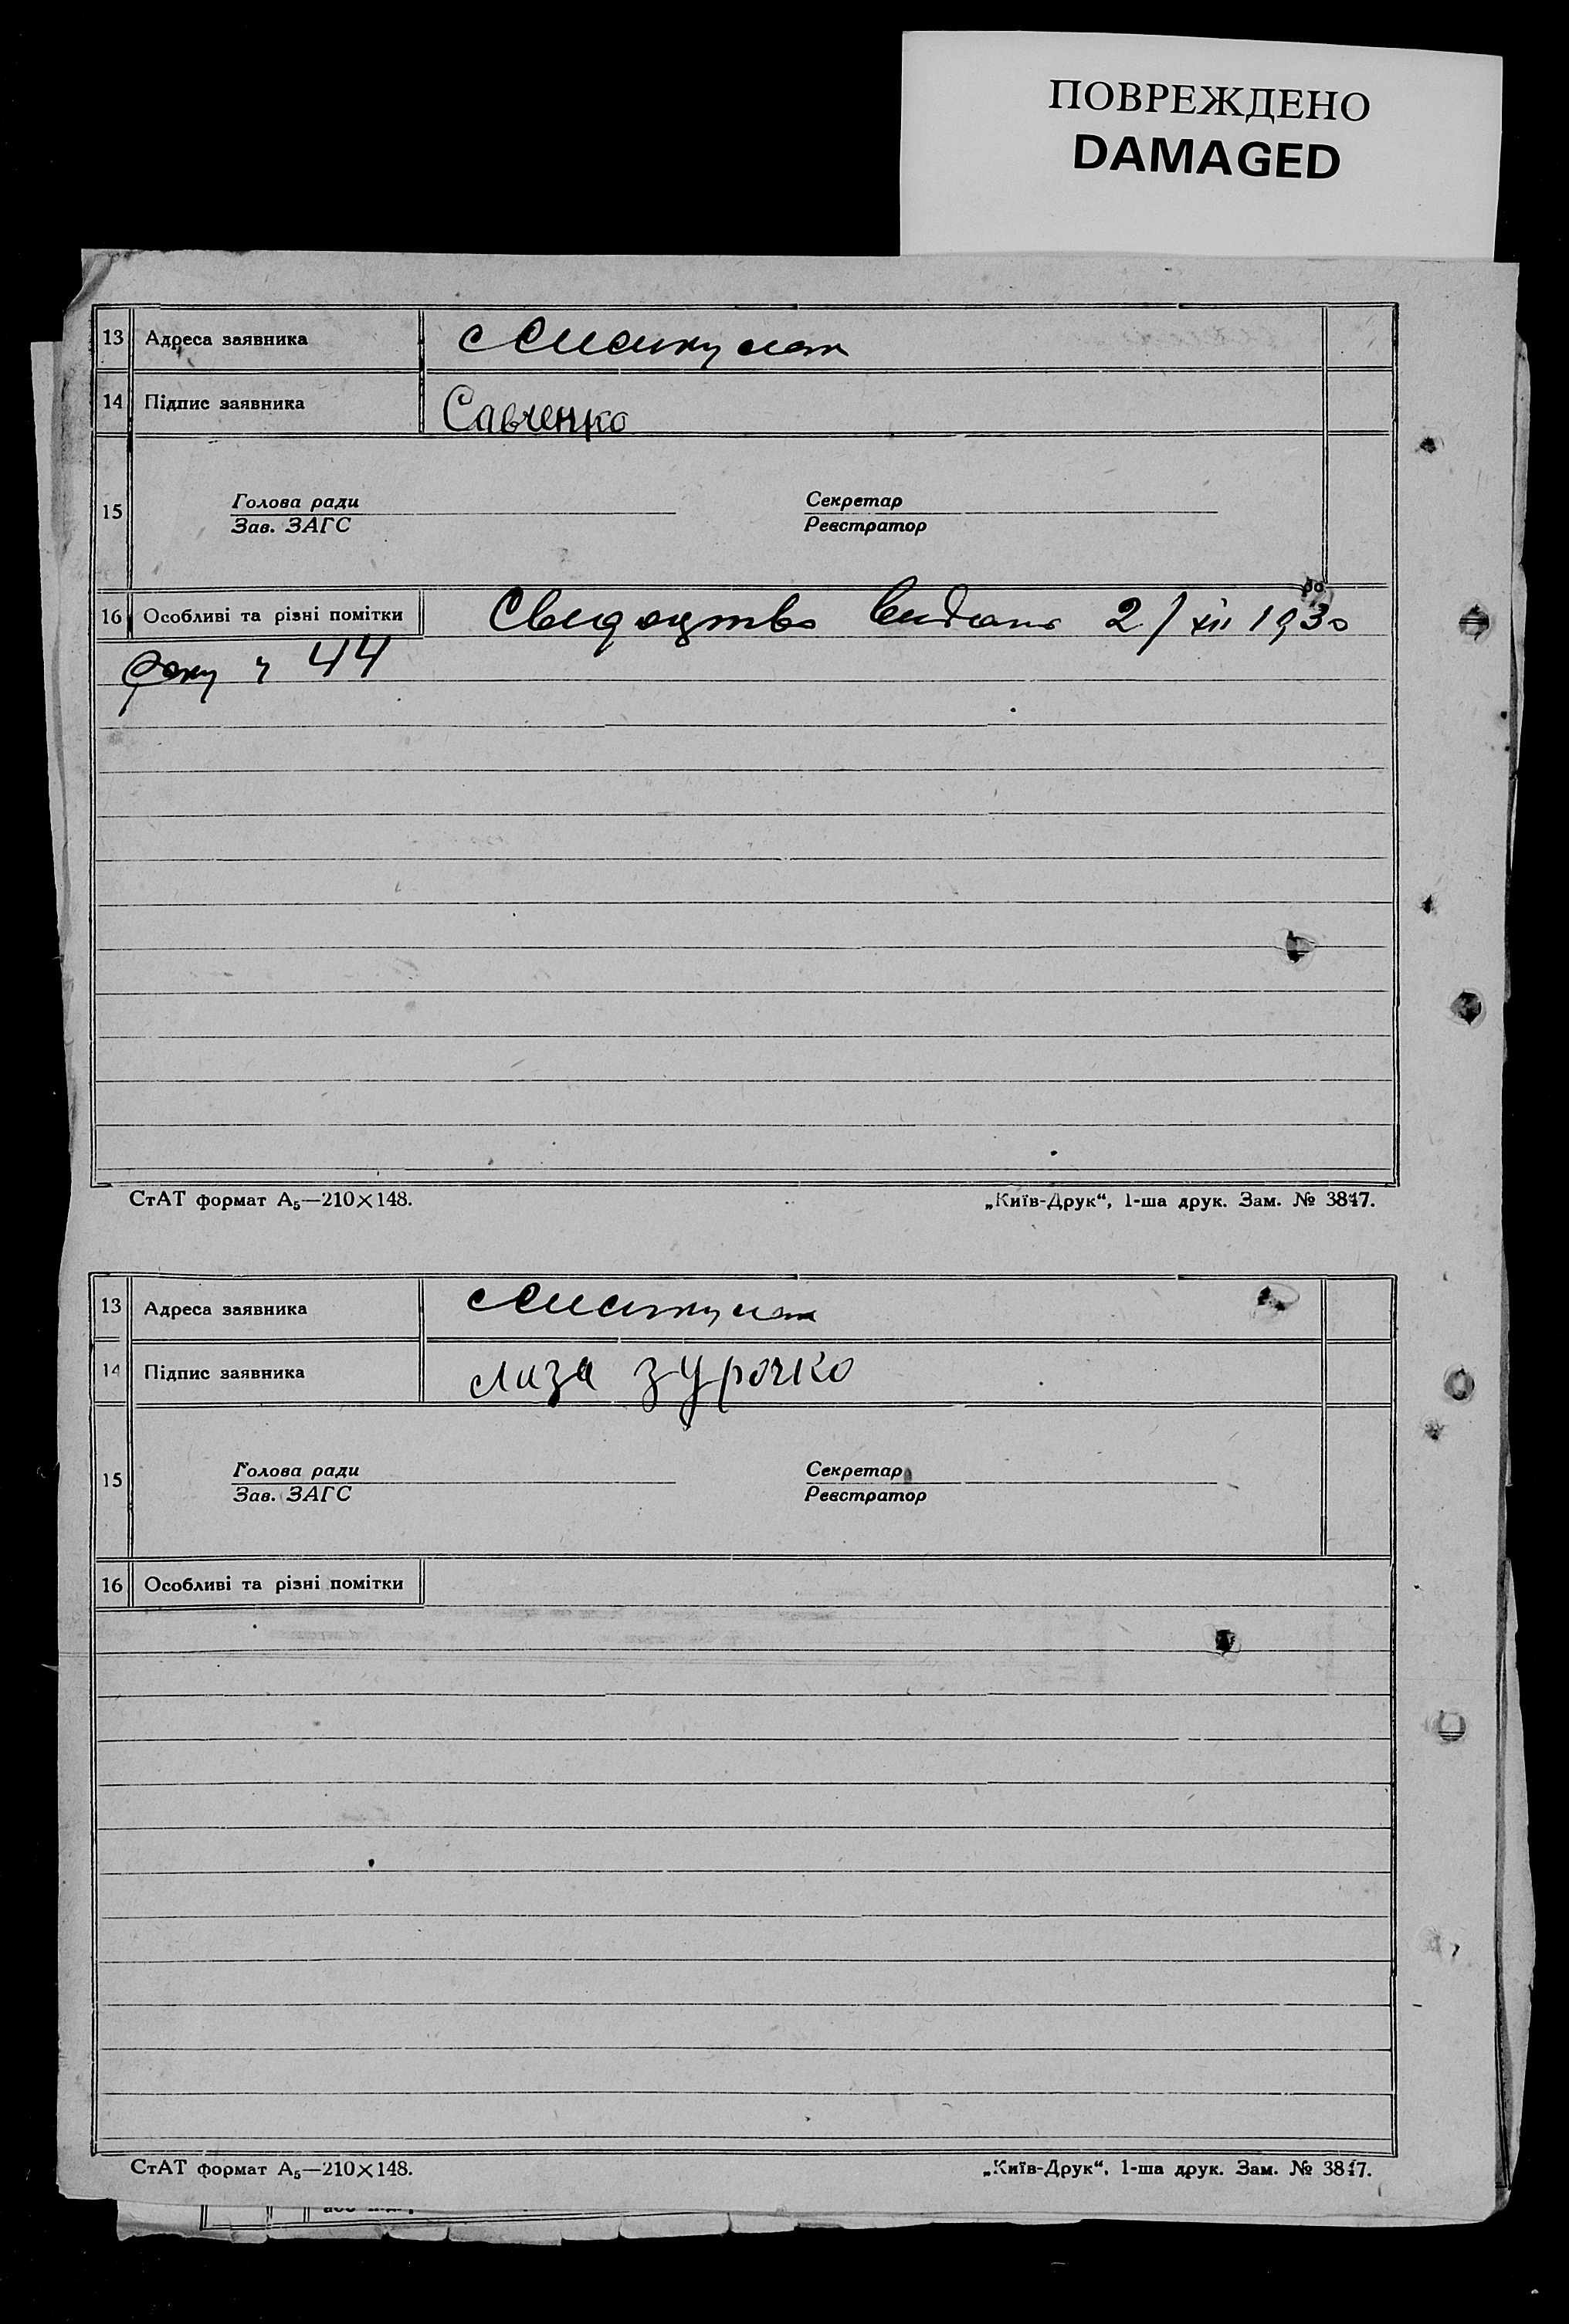 ПОВРЕЖДЕНО
DAMAGED
13 Адреса заявника
14 Підпис заявника Савченко
15 Голова ради Секретар
Зав. ЗАГС Реєстратор
16 Особливі та різні помітки Свидоцтво видано 2/XII 1930
року ч 44
СтАТ формат А₅—210×148. „Київ-Друк“, 1-ша друк. Зам. № 3847.
13 Адреса заявника
14 Підпис заявника лиза зурочко
15 Голова ради Секретар
Зав. ЗАГС Реєстратор
16 Особливі та різні помітки
СтАТ формат А₅—210×148. „Київ-Друк“, 1-ша друк. Зам. № 3847.